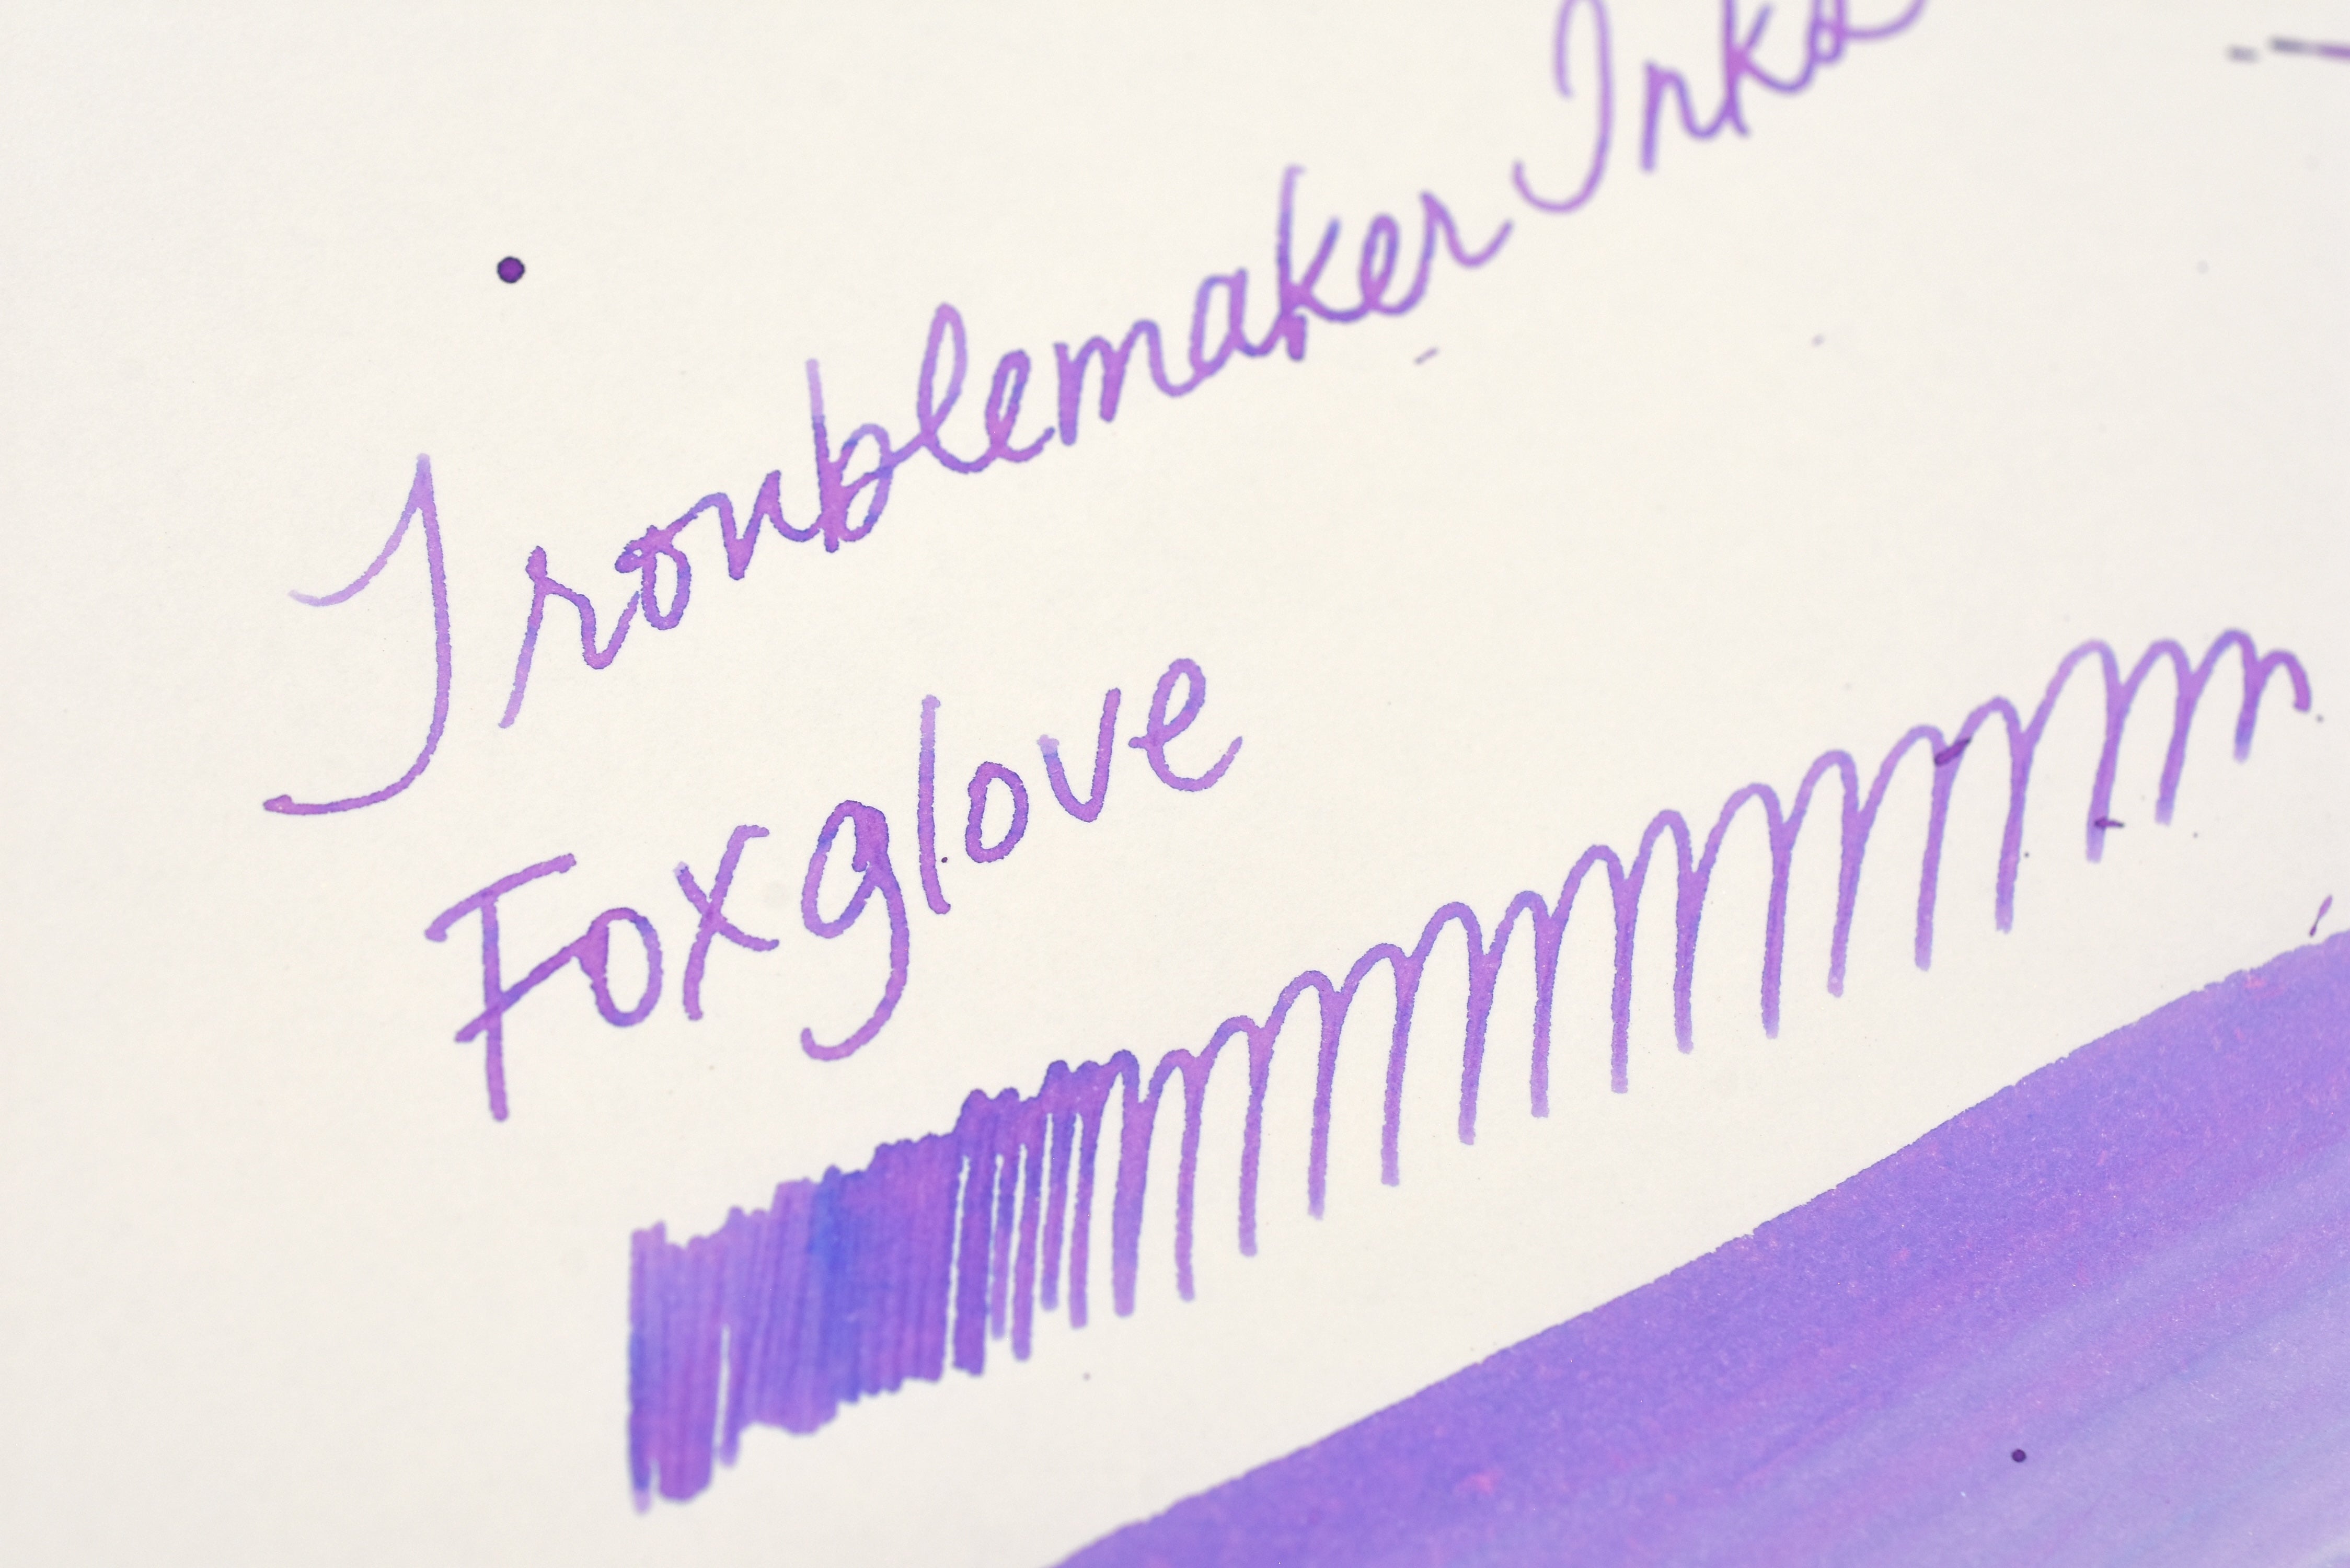 Troublemaker Inks
Foxglove